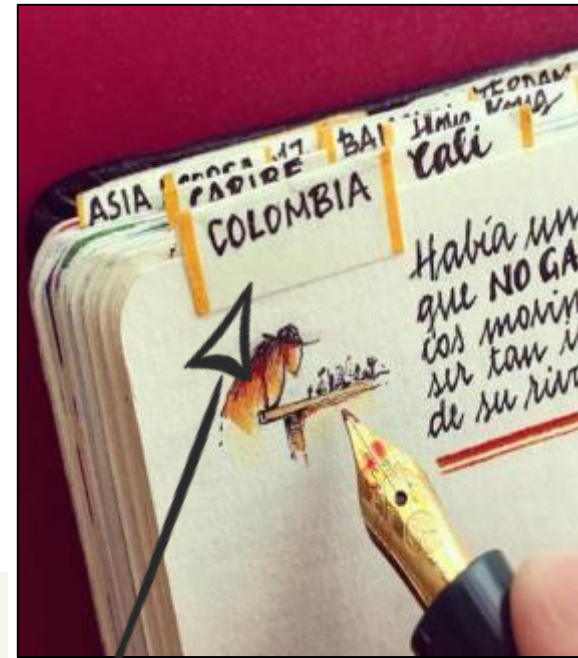 ASIA
CARIBE
COLOMBIA
Cali
Había un
que NO GA
cos movim
ser tan i
de su riv